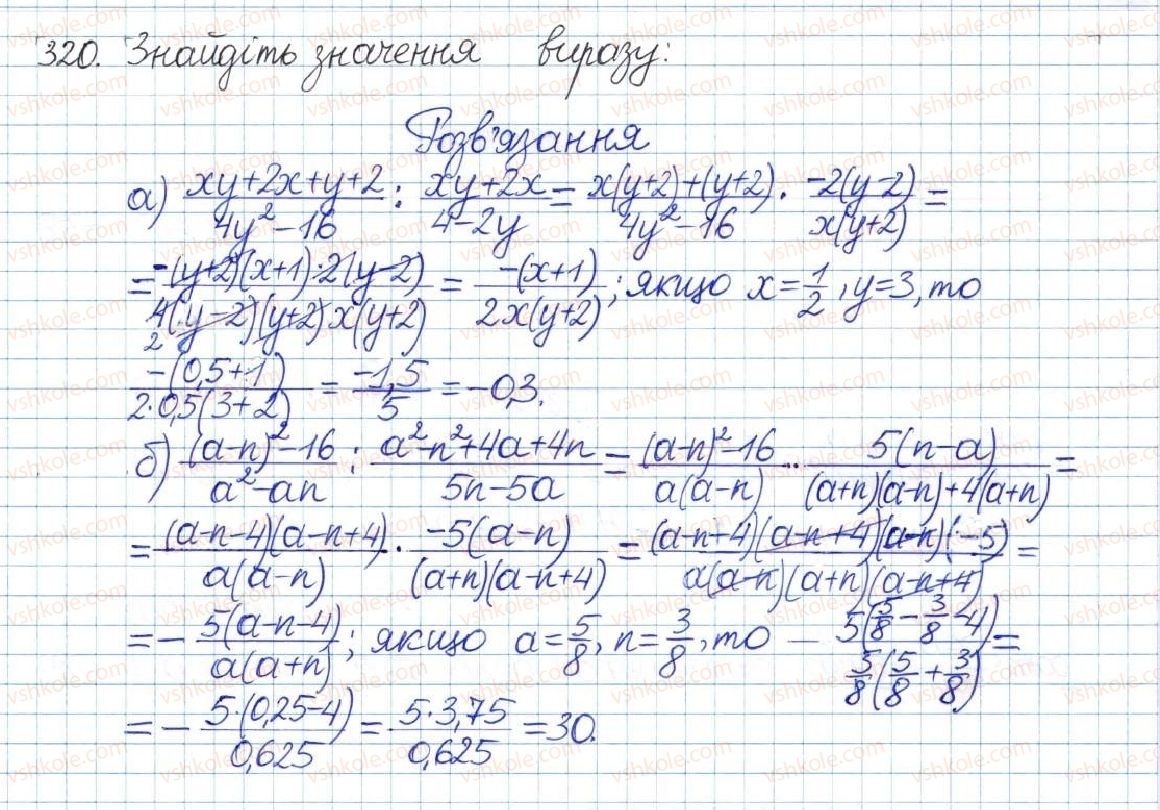 320. Знайдіть значення виразу:
Розв'язання
а) (xy+2x+y+2)/(4y²-16) : (xy+2x)/(4-2y) = (x(y+2)+(y+2))/(4y²-16) · (-2(y-2))/(x(y+2)) =
= (-(y+2)(x+1)·2(y-2))/(4(y-2)(y+2)x(y+2)) 2 = (-(x+1))/(2x(y+2)); якщо x=1/2, y=3, то
(-(0,5+1))/(2·0,5(3+2)) = (-1,5)/5 = -0,3.
б) ((a-n)²-16)/(a²-an) : (a²-n²+4a+4n)/(5n-5a) = ((a-n)²-16)/(a(a-n)) ·· (5(n-a))/((a+n)(a-n)+4(a+n)) =
= ((a-n-4)(a-n+4))/(a(a-n)) · (-5(a-n))/((a+n)(a-n+4)) = ((a-n+4)(a-n+4)(a-n)(-5))/(a(a-n)(a+n)(a-n+4)) =
= - (5(a-n-4))/(a(a+n)); якщо a=5/8, n=3/8, то - (5(5/8-3/8-4))/(5/8(5/8+3/8)) =
= - (5·(0,25-4))/(0,625) = (5·3,75)/(0,625) = 30.
vshkole.com